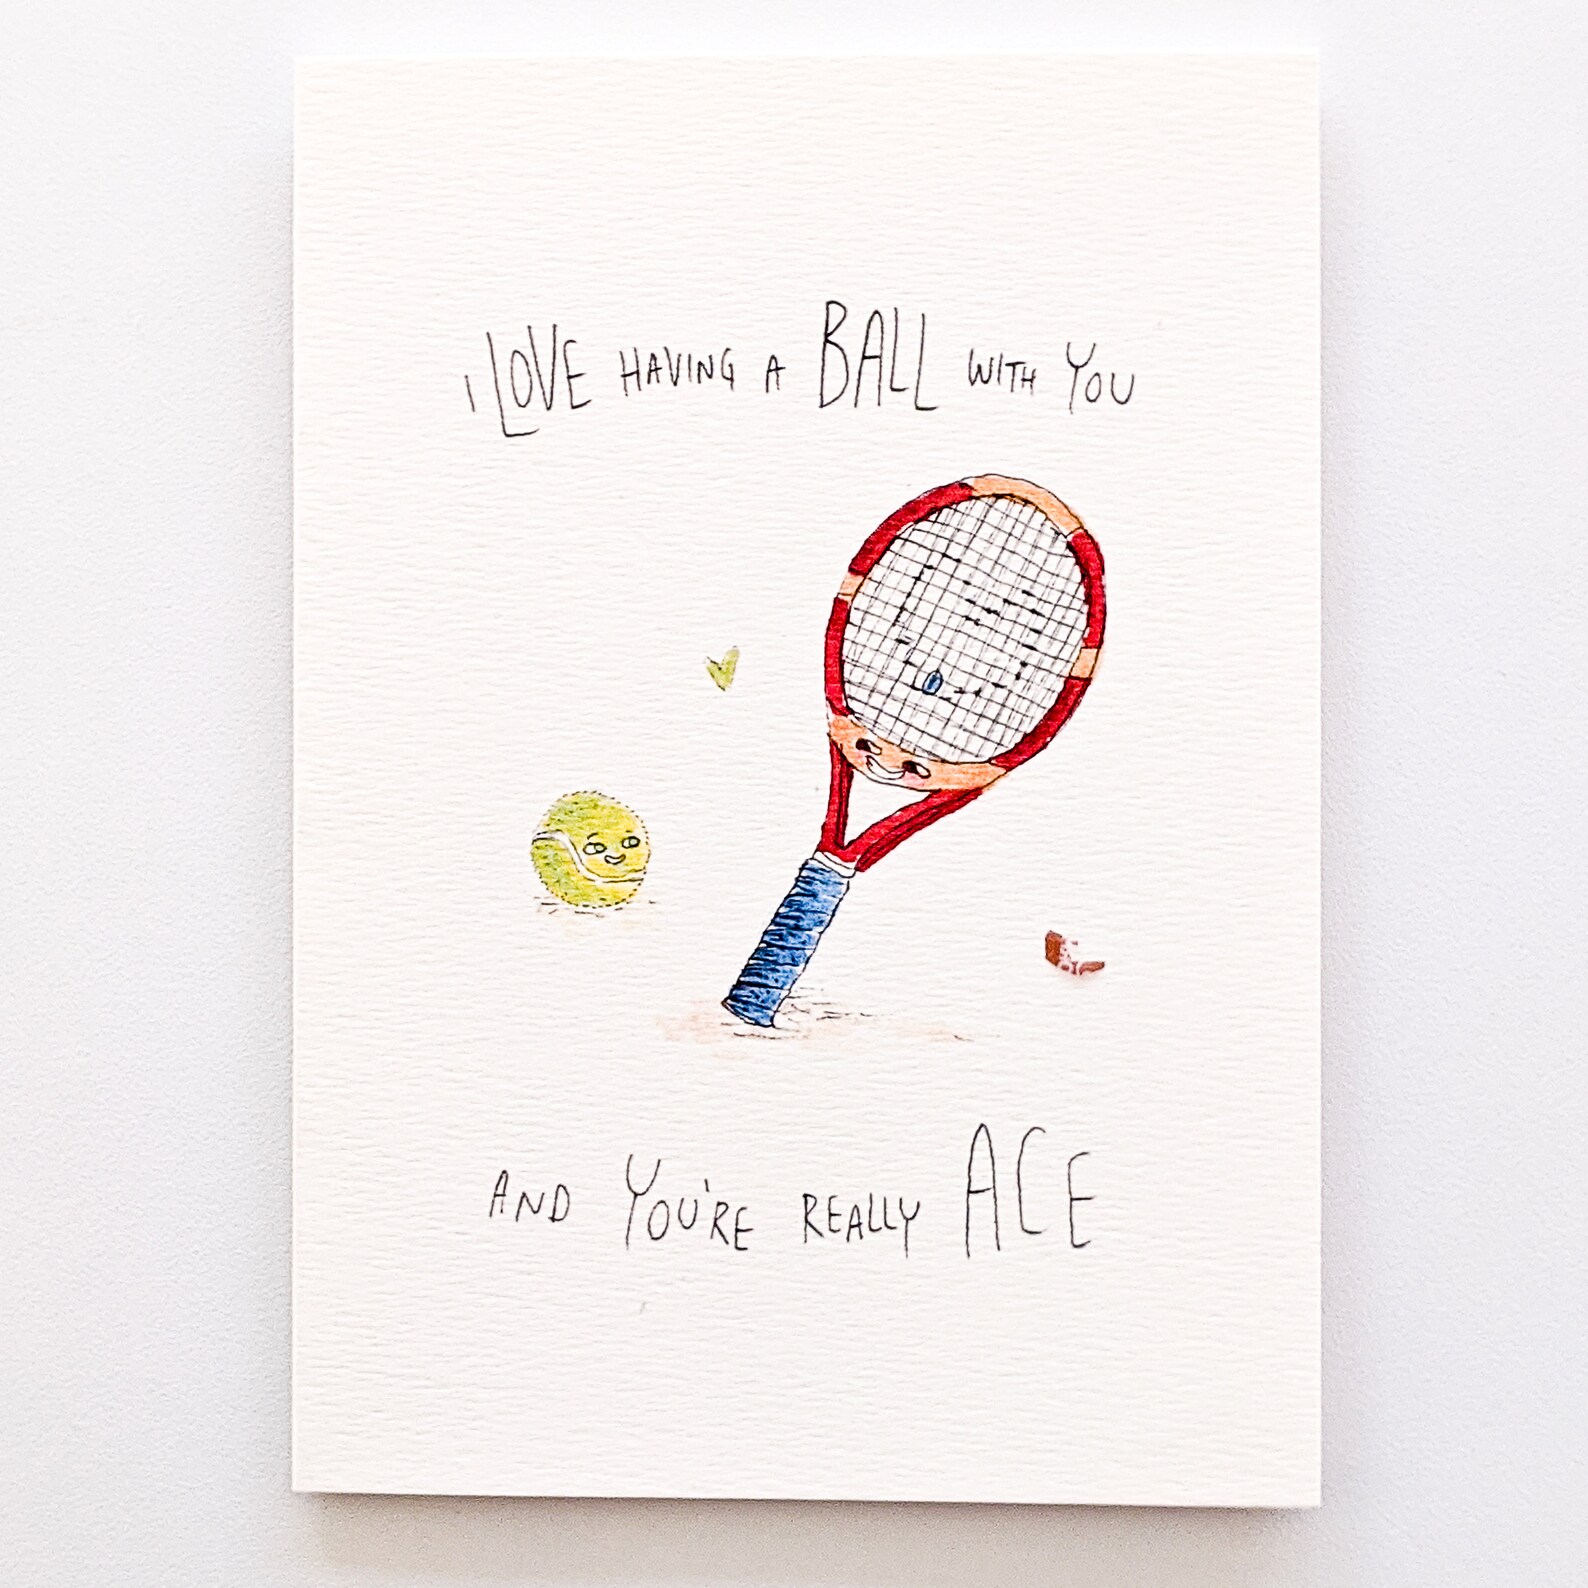 I LOVE HAVING A BALL WITH YOU
AND YOU'RE REALLY ACE